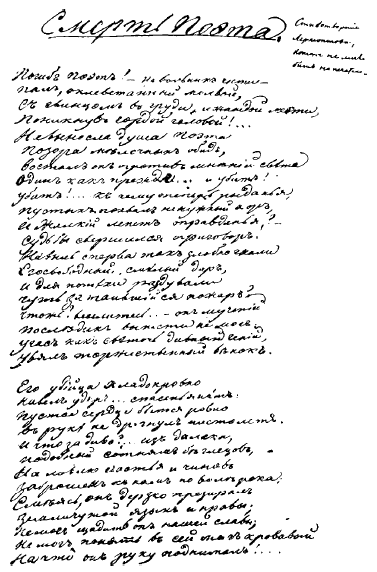 Смерть Поэта.
Стихотвореніе
Лермонтова,
Погибъ Поэтъ! — невольникъ чести —
палъ, оклеветанный молвой,
Съ свинцомъ въ груди, и жаждой мести,
Поникнувъ гордой головой!...
Не вынесла душа Поэта
Позора мелочныхъ обидъ,
возсталъ онъ противъ мнѣній свѣта
Одинъ какъ прежде.... и убитъ!
убитъ!... къ чему теперь рыданья,
пустыхъ похвалъ ненужный хоръ,
И жалкій лепетъ оправданья? —
Судьбы свершился приговоръ.
Не вы ль сперва такъ злобно гнали
Его свободный, смѣлый даръ,
и для потѣхи раздували
чуть затаившійся пожаръ?
чтожъ? веселитесь.. — онъ мученій
послѣднихъ вынести не могъ:
угасъ какъ свѣточъ дивный геній,
увялъ торжественный вѣнокъ.
Его убійца хладнокровно
навелъ ударъ... спасенья нѣтъ:
пустое сердце бьется ровно
Въ рукѣ не дрогнулъ пистолетъ.
И что за диво?... изъ далека,
подобный сотнямъ бѣглецовъ,
На ловлю счастья и чиновъ
Заброшенъ къ намъ по волѣ рока;
Смѣясь, онъ дерзко презиралъ
Земли чужой языкъ и нравы;
Не могъ щадить онъ нашей славы;
Не могъ понять въ сей мигъ кровавой
На что онъ руку поднималъ!....